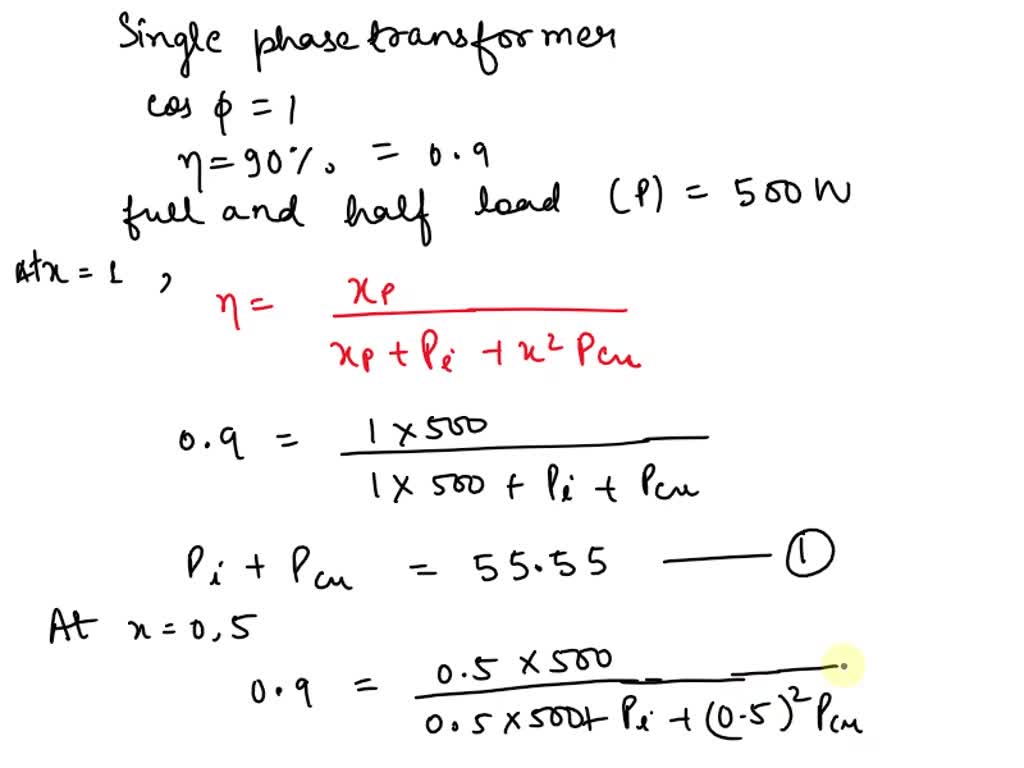 Single phase transformer
cos φ = 1
η = 90%. = 0.9
full and half load (P) = 500W
Atx = 1 ,
η = xP / xP + Pi + x² Pcu
0.9 = 1 × 500 / 1 × 500 + Pi + Pcu
Pi + Pcu = 55.55 —— ①
At x = 0,5
0.9 = 0.5 × 500 / 0.5 × 500 + Pi + (0.5)² Pcu